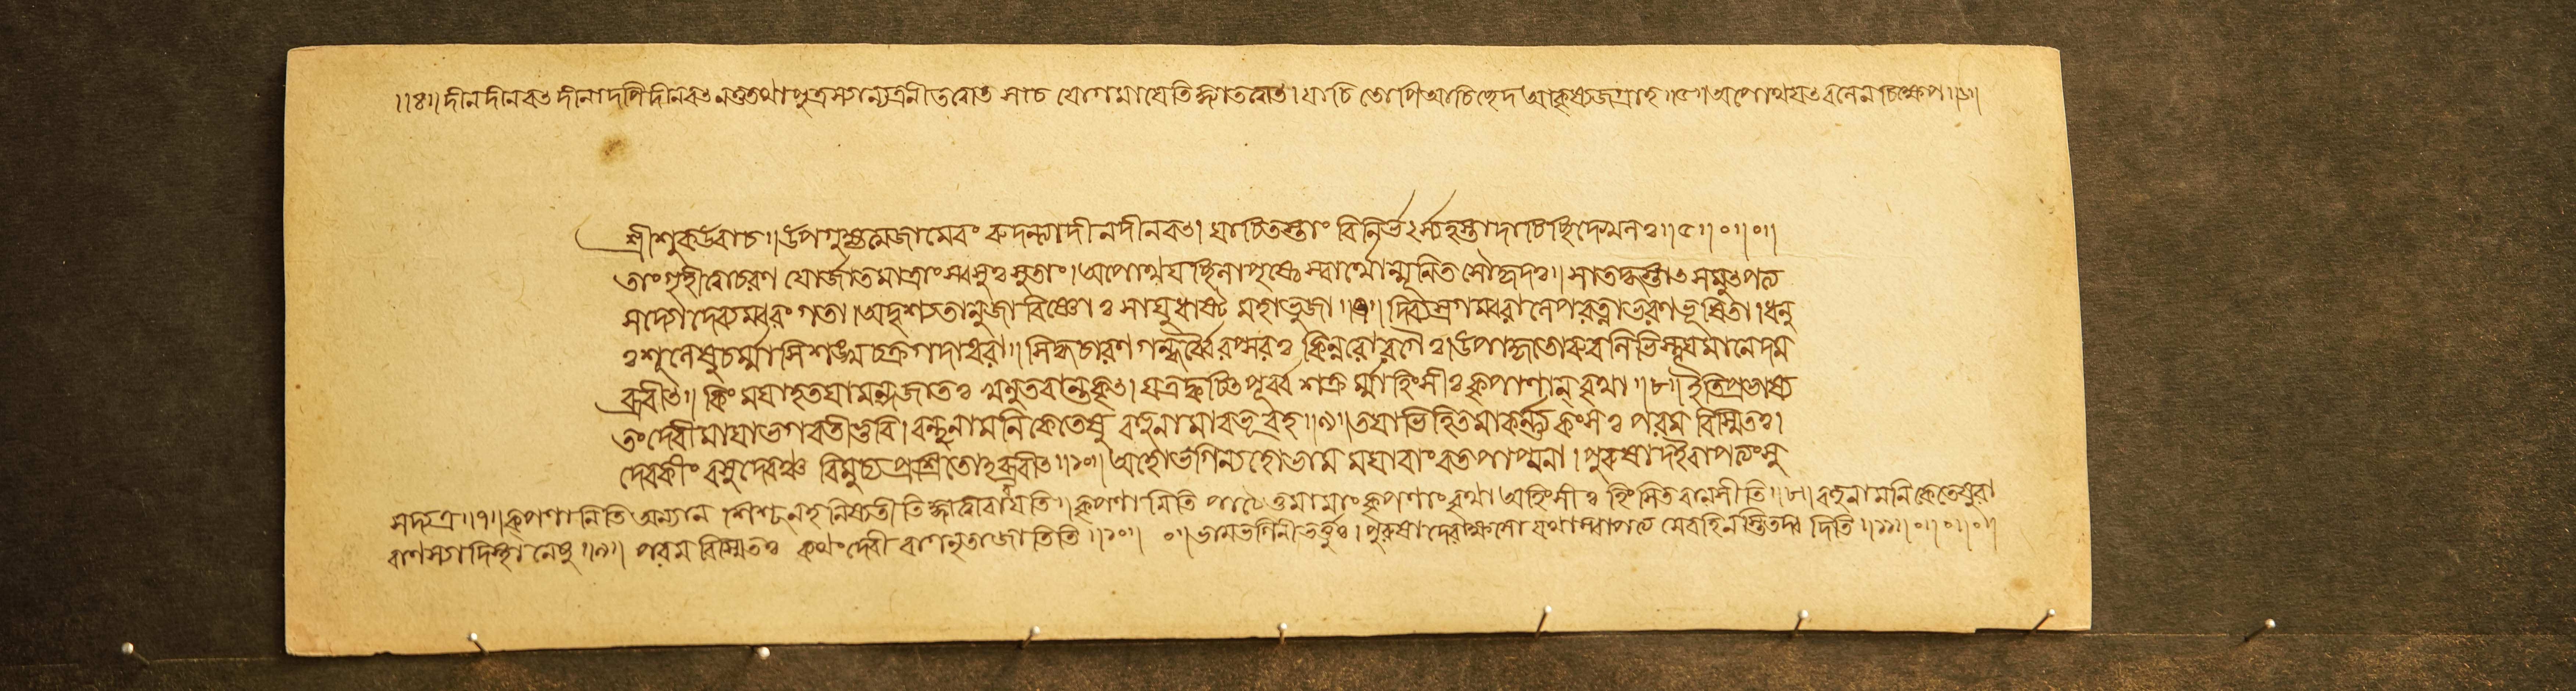 ।।৪।। দীনদীনবৎ দীনাদপিদীনবৎ ননুতথাপুত্রসগন্যত্রনীতবোত সাচ যোগমাযেতি জ্ঞাতবোত। যাচি তোপিআচিছেদ আকৃষ্যজগ্রাহ।।৫।। অপোথযৎবলেনচিক্ষেপ।।৬।।
শ্রীশুকউবাচ।। উপগুহ্যত্মজামেবং রুদন্ত্যাদীনদীনবৎ। যাচিতস্তাং বিনির্ভৎর্স্যহস্তাদাচিচ্ছিদেখলঃ।।৫।।০।।০।।
তাংগৃহীত্বাচরণ যোর্জাতমাত্রাংস্বসুঃসুতাং। অপোথযচ্ছিলাপৃষ্ঠেস্বার্থোন্মূলিতসৌহৃদঃ।। সাতদ্ধস্তাৎ সমুৎপত্য
সদ্যোদেব্যম্বরং গতা। অদৃশ্যতানুজাবিষ্ণোঃ সাযুধাষ্ট মহাভুজা।।৭।। দিব্যস্রগম্বরালেপরত্নাভরণভূষিতা। ধনু
ঃশূলেষুচর্ম্মাসিশঙ্খচক্রগদাধরা।। সিদ্ধচারণগন্ধর্ব্বৈরপ্সরঃ কিন্নরোরগৈঃ। উপাহৃতোরুবলিভিস্তূযমানেদম
ব্রবীৎ।। কিং মযাহতযামন্দজাতঃ খলুতবান্তকৃৎ। যত্রক্বচিৎপূর্ব্ব শত্রু র্ম্মাহিংসীঃ কৃপাণান্ বৃথা।।৮।। ইতিপ্রভাষ্য
তংদেবীমাযাভগবতীভুবি। বহুনামনিকেতেষু বহুনামাবভূবহ।।৯।। তযাভিহিতমাকর্ন্ন্য কংসঃ পরম বিস্মিতঃ।
দেবকীং বসুদেবঞ্চ বিমুচ্যপ্রশ্রিতোঽব্রবীৎ।।১০।। অহোভগিন্যহোভাম মযাবাংবতপাপ্মনা। পুরুষাদইবাপত্যংসু
সদ্যত্র।।৭।। কৃপণানিতি অন্যান কৃপণামিতি পাঠেতুমামাং কৃপণাংবৃথা অহিংসীঃ হিংসিতবানসীতি।।৮।। বহুনামনিকেতেষুবা
পরম বিস্মিতঃ কথংদেবী ।।১০।। ০।। ভামভগিনীভর্ত্তুঃ। দিতি।।১১।।০।।০।।০।।